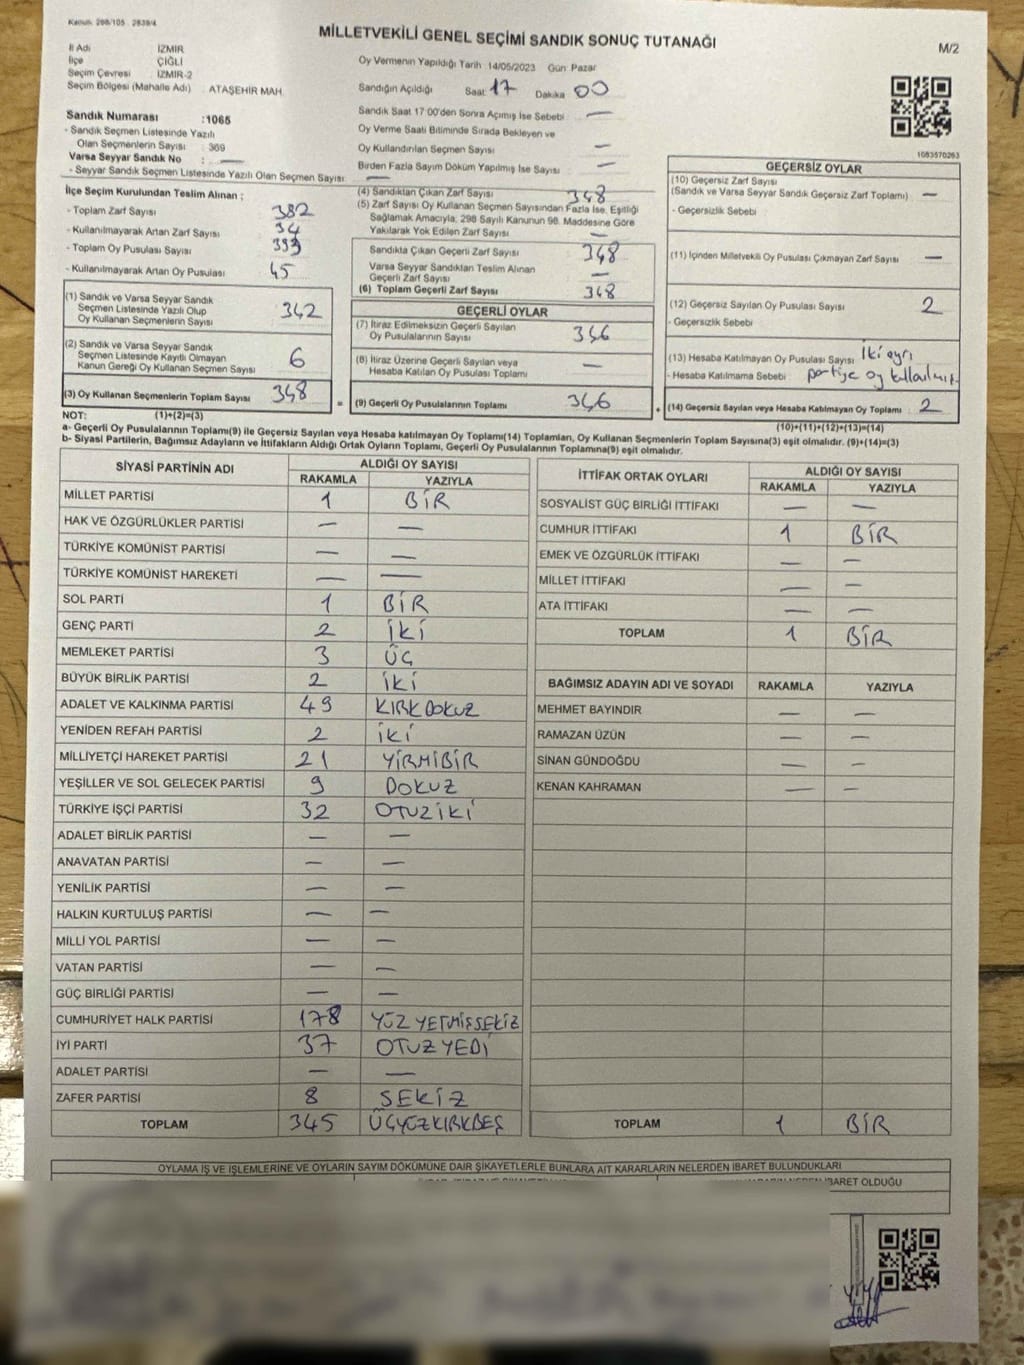 Kanun: 298/105 - 2839/4
MİLLETVEKİLİ GENEL SEÇİMİ SANDIK SONUÇ TUTANAĞI
M/2
İl Adı İZMİR
İlçe ÇİĞLİ
Seçim Çevresi İZMİR-2
Seçim Bölgesi (Mahalle Adı) : ATAŞEHİR MAH.
Sandık Numarası :1065
- Sandık Seçmen Listesinde Yazılı
Olan Seçmenlerin Sayısı : 369
Varsa Seyyar Sandık No : —
- Seyyar Sandık Listesinde Yazılı Olan Seçmen Sayısı: —
Oy Vermenin Yapıldığı Tarih 14/05/2023 Gün: Pazar
Sandığın Açıldığı Saat 17 Dakika 00
Sandık Saat 17:00'den Sonra Açımış İse Sebebi : —
Oy Verme Saati Bitiminde Sırada Bekleyen ve
Oy Kullandırılan Seçmen Sayısı : —
Birden Fazla Sayım Döküm Yapılmış İse Sayısı : —
1083570263
İlçe Seçim Kurulundan Teslim Alınan ;
- Toplam Zarf Sayısı : 382
- Kullanılmayarak Artan Zarf Sayısı : 34
- Toplam Oy Pusulası Sayısı : 393
- Kullanılmayarak Artan Oy Pusulası : 45
(1) Sandık ve Varsa Seyyar Sandık
Seçmen Listesinde Yazılı Olup
Oy Kullanan Seçmenlerin Sayısı : 342
(2) Sandık ve Varsa Seyyar Sandık
Seçmen Listesinde Kayıtlı Olmayan
Kanun Gereği Oy Kullanan Seçmen Sayısı : 6
(3) Oy Kullanan Seçmenlerin Toplam Sayısı : 348
(4) Sandıktan Çıkan Zarf Sayısı : 348
(5) Zarf Sayısı Oy Kullanan Seçmen Sayısından Fazla İse, Eşitliği
Sağlamak Amacıyla; 298 Sayılı Kanunun 98. Maddesine Göre
Yakılarak Yok Edilen Zarf Sayısı : —
Sandıkta Çıkan Geçerli Zarf Sayısı : 348
Varsa Seyyar Sandıktan Teslim Alınan
Geçerli Zarf Sayısı : —
(6) Toplam Geçerli Zarf Sayısı : 348
GEÇERLİ OYLAR
(7) İtiraz Edilmeksizin Geçerli Sayılan
Oy Pusulalarının Sayısı : 346
(8) İtiraz Üzerine Geçerli Sayılan veya
Hesaba Katılan Oy Pusulası Toplamı : —
= (9) Geçerli Oy Pusulalarının Toplamı : 346
GEÇERSİZ OYLAR
(10) Geçersiz Zarf Sayısı
(Sandık ve Varsa Seyyar Sandık Geçersiz Zarf Toplamı) : —
- Geçersizlik Sebebi :
(11) İçinden Milletvekili Oy Pusulası Çıkmayan Zarf Sayısı : —
(12) Geçersiz Sayılan Oy Pusulası Sayısı : 2
- Geçersizlik Sebebi :
(13) Hesaba Katılmayan Oy Pusulası Sayısı : İki ayrı
- Hesaba Katılmama Sebebi : partiye oy kullanılmış.
+ (14) Geçersiz Sayılan veya Hesaba Katılmayan Oy Toplamı : 2
NOT: (1)+(2)=(3) (10)+(11)+(12)+(13)=(14)
a- Geçerli Oy Pusulalarının Toplamı(9) ile Geçersiz Sayılan veya Hesaba katılmayan Oy Toplamı(14) Toplamları, Oy Kullanan Seçmenlerin Toplam Sayısına(3) eşit olmalıdır. (9)+(14)=(3)
b- Siyasi Partilerin, Bağımsız Adayların ve İttifakların Aldığı Ortak Oyların Toplamı, Geçerli Oy Pusulalarının Toplamına(9) eşit olmalıdır.
SİYASİ PARTİNİN ADI ALDIĞI OY SAYISI
RAKAMLA YAZIYLA
MİLLET PARTİSİ 1 BİR
HAK VE ÖZGÜRLÜKLER PARTİSİ — —
TÜRKİYE KOMÜNİST PARTİSİ — —
TÜRKİYE KOMÜNİST HAREKETİ — —
SOL PARTİ 1 BİR
GENÇ PARTİ 2 İKİ
MEMLEKET PARTİSİ 3 ÜÇ
BÜYÜK BİRLİK PARTİSİ 2 İKİ
ADALET VE KALKINMA PARTİSİ 49 KIRKDOKUZ
YENİDEN REFAH PARTİSİ 2 İKİ
MİLLİYETÇİ HAREKET PARTİSİ 21 YİRMİBİR
YEŞİLLER VE SOL GELECEK PARTİSİ 9 DOKUZ
TÜRKİYE İŞÇİ PARTİSİ 32 OTUZİKİ
ADALET BİRLİK PARTİSİ — —
ANAVATAN PARTİSİ — —
YENİLİK PARTİSİ — —
HALKIN KURTULUŞ PARTİSİ — —
MİLLİ YOL PARTİSİ — —
VATAN PARTİSİ — —
GÜÇ BİRLİĞİ PARTİSİ — —
CUMHURİYET HALK PARTİSİ 178 YÜZ YETMİŞSEKİZ
İYİ PARTİ 37 OTUZ YEDİ
ADALET PARTİSİ — —
ZAFER PARTİSİ 8 SEKİZ
TOPLAM 345 ÜÇYÜZKIRKBEŞ
İTTİFAK ORTAK OYLARI ALDIĞI OY SAYISI
RAKAMLA YAZIYLA
SOSYALİST GÜÇ BİRLİĞİ İTTİFAKI — —
CUMHUR İTTİFAKI 1 BİR
EMEK VE ÖZGÜRLÜK İTTİFAKI — —
MİLLET İTTİFAKI — —
ATA İTTİFAKI — —
TOPLAM 1 BİR
BAĞIMSIZ ADAYIN ADI VE SOYADI RAKAMLA YAZIYLA
MEHMET BAYINDIR — —
RAMAZAN ÜZÜN — —
SİNAN GÜNDOĞDU — —
KENAN KAHRAMAN — —
TOPLAM 1 BİR
OYLAMA İŞ VE İŞLEMLERİNE VE OYLARIN SAYIM DÖKÜMÜNE DAİR ŞİKAYETLERLE BUNLARA AİT KARARLARIN NELERDEN İBARET BULUNDUKLARI
İBARET OLDUĞU